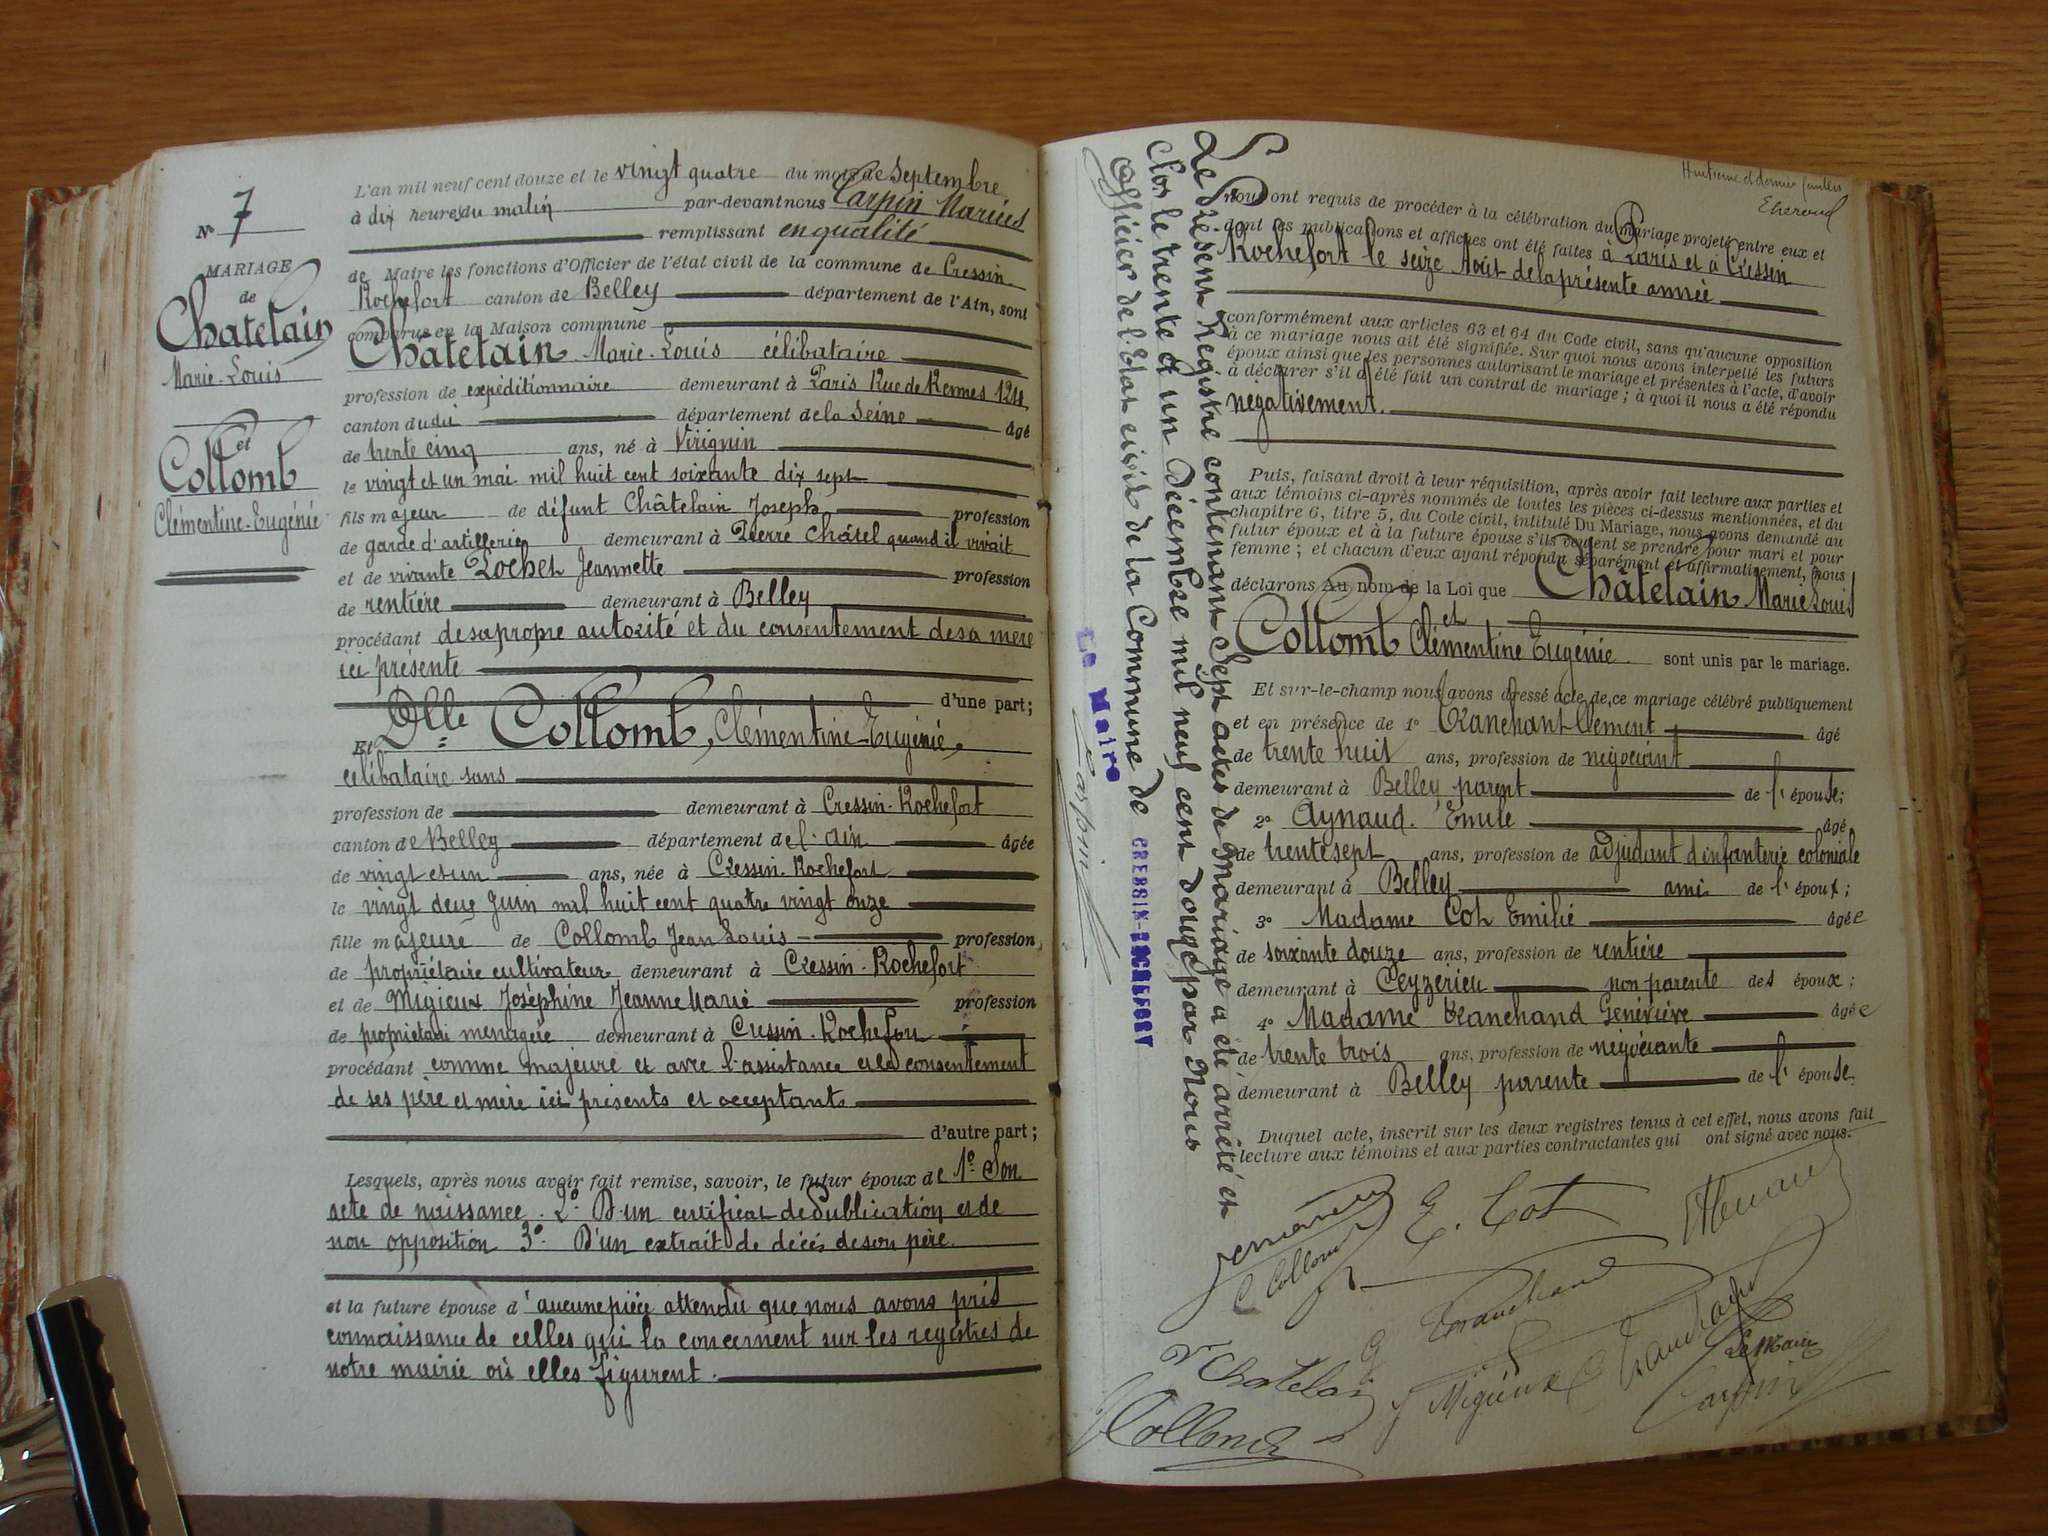 N° 7
MARIAGE
de
Chatelain
Marie-Louis
et
Collomb
Clémentine-Eugénie
L'an mil neuf cent douze et le vingt quatre du mois de Septembre
à dix heures du matin par-devant nous Carpin Marius
remplissant en qualité
de Maire les fonctions d'Officier de l'état civil de la commune de Cressin-
Rochefort canton de Belley département de l'Ain, sont
comparus en la Maison commune
Châtelain Marie-Louis célibataire
profession de expéditionnaire demeurant à Paris Rue de Rennes 124,
canton dudit département de la Seine âgé
de trente cinq ans, né à Virignin
le vingt et un mai mil huit cent soixante dix sept
fils majeur de défunt Châtelain Joseph profession
de garde d'artillerie demeurant à Pierre Châtel quand il vivait
et de vivante Pochet Jeannette profession
de rentière demeurant à Belley
procédant de sa propre autorité et du consentement de sa mère
ici présente
d'une part;
Et Dlle Collomb, Clémentine-Eugénie,
célibataire sans
profession de demeurant à Cressin-Rochefort
canton de Belley département de l'Ain âgée
de vingt et un ans, née à Cressin-Rochefort
le vingt deux Juin mil huit cent quatre vingt onze
fille majeure de Collomb Jean Louis profession
de propriétaire cultivateur demeurant à Cressin-Rochefort
et de Migieux Joséphine Jeanne Marie profession
de propriétaire menagère demeurant à Cressin-Rochefort
procédant comme majeure et avec l'assistance et le consentement
de ses père et mère ici présents et acceptants
d'autre part;
Lesquels, après nous avoir fait remise, savoir, le futur époux de 1° Son
acte de naissance. 2° D'un certificat de Publication et de
non opposition 3° D'un extrait de décés de son père.
et la future épouse d'aucune pièce attendu que nous avons pris
connaissance de celles qui la concernent sur les registres de
notre mairie où elles figurent.
Le Présent Registre contenant Sept actes de Mariage a été arrêté et
clos le trente et un Décembre mil neuf cent douze par Nous
Officier de l'Etat civil de la Commune de CRESSIN-ROCHEFORT
Le Maire
Carpin
Huitième et dernier feuillet
nous ont requis de procéder à la célébration du mariage projeté entre eux et
dont les publications et affiches ont été faites à Paris et à Cressin
Rochefort le seize Août de la présente année
conformément aux articles 63 et 64 du Code civil, sans qu'aucune opposition
à ce mariage nous ait été signifiée. Sur quoi nous avons interpellé les futurs
époux ainsi que les personnes autorisant le mariage et présentes à l'acte, d'avoir
à déclarer s'il a été fait un contrat de mariage; à quoi il nous a été répondu
négativement.
Puis, faisant droit à leur réquisition, après avoir fait lecture aux parties et
aux témoins ci-après nommés de toutes les pièces ci-dessus mentionnées, et du
chapitre 6, titre 5, du Code civil, intitulé Du Mariage, nous avons demandé au
futur époux et à la future épouse s'ils veulent se prendre pour mari et pour
femme; et chacun d'eux ayant répondu séparément et affirmativement, nous
déclarons Au nom de la Loi que Châtelain Marie Louis
et
Collomb Clémentine Eugénie sont unis par le mariage.
Et sur-le-champ nous avons dressé acte de ce mariage célébré publiquement
et en présence de 1° Tranchant Clément âgé
de trente huit ans, profession de négociant
demeurant à Belley parent de l'épouse;
2° Aynaud Emile âgé
de trente sept ans, profession de adjudant d'infanterie coloniale
demeurant à Belley ami de l'époux;
3° Madame Cot Emilie âgée
de soixante douze ans, profession de rentière
demeurant à Ceyzérieu non parente des époux;
4° Madame Tranchand Geneviève âgée
de trente trois ans, profession de négociante
demeurant à Belley parente de l'épouse.
Duquel acte, inscrit sur les deux registres tenus à cet effet, nous avons fait
lecture aux témoins et aux parties contractantes qui ont signé avec nous.
E. Cot
C Collomb
Tranchand
Tranchand
Vve Chatelain
J Migieux
Le Maire
Carpin
Collomb